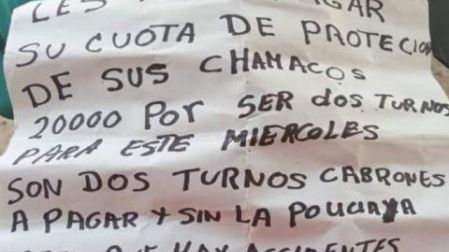 LES
SU CUOTA DE PROTECION
DE SUS CHAMACOS
20000 POR SER dOS TURNOS
PARA ESTE MIERCOLES
SON DOS TURNOS CABRONES
A PAGAR Y SIN LA
QUE HAY ACCIDENTES